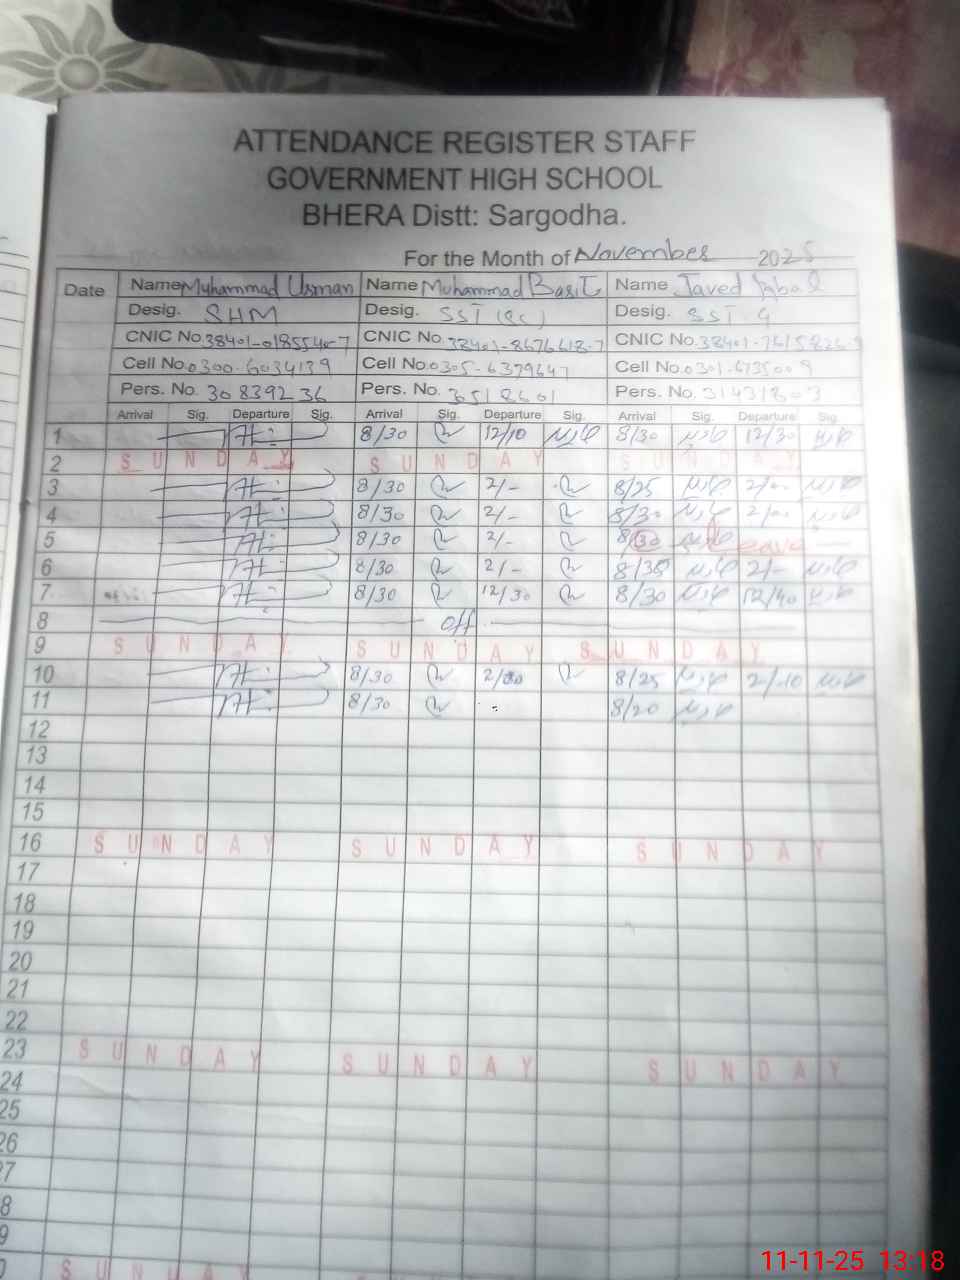 ATTENDANCE REGISTER STAFF
GOVERNMENT HIGH SCHOOL
BHERA Distt: Sargodha.
For the Month of November 2025
Date Name Muhammad Usman Name Muhammad Basit Name Javed Iqbal
Desig. SHM Desig. SST (Sc) Desig. SST. G
CNIC No. CNIC No. CNIC No.
Cell No. 0300-6034139 Cell No. 0305-6379647 Cell No. 0301-6735009
Pers. No. 30839236 Pers. No. Pers. No.
Arrival Sig. Departure Sig. Arrival Sig. Departure Sig. Arrival Sig. Departure Sig
1 8/30 12/10 8/30 12/30
2 SUNDAY SUNDAY SUNDAY
3 8/30 2/- 8/25 2/00
4 8/30 2/- 8/30 2/00
5 8/30 2/- 8/30 Leave
6 8/30 2/- 8/35 2/-
7 8/30 12/30 8/30 12/40
8 Off
9 SUNDAY SUNDAY SUNDAY
10 8/30 2/00 8/25 2/10
11 8/30 8/20
12
13
14
15
16 SUNDAY SUNDAY SUNDAY
17
18
19
20
21
22
23 SUNDAY SUNDAY SUNDAY
24
25
26
27
8
9
SUNDAY
11-11-25 13:18